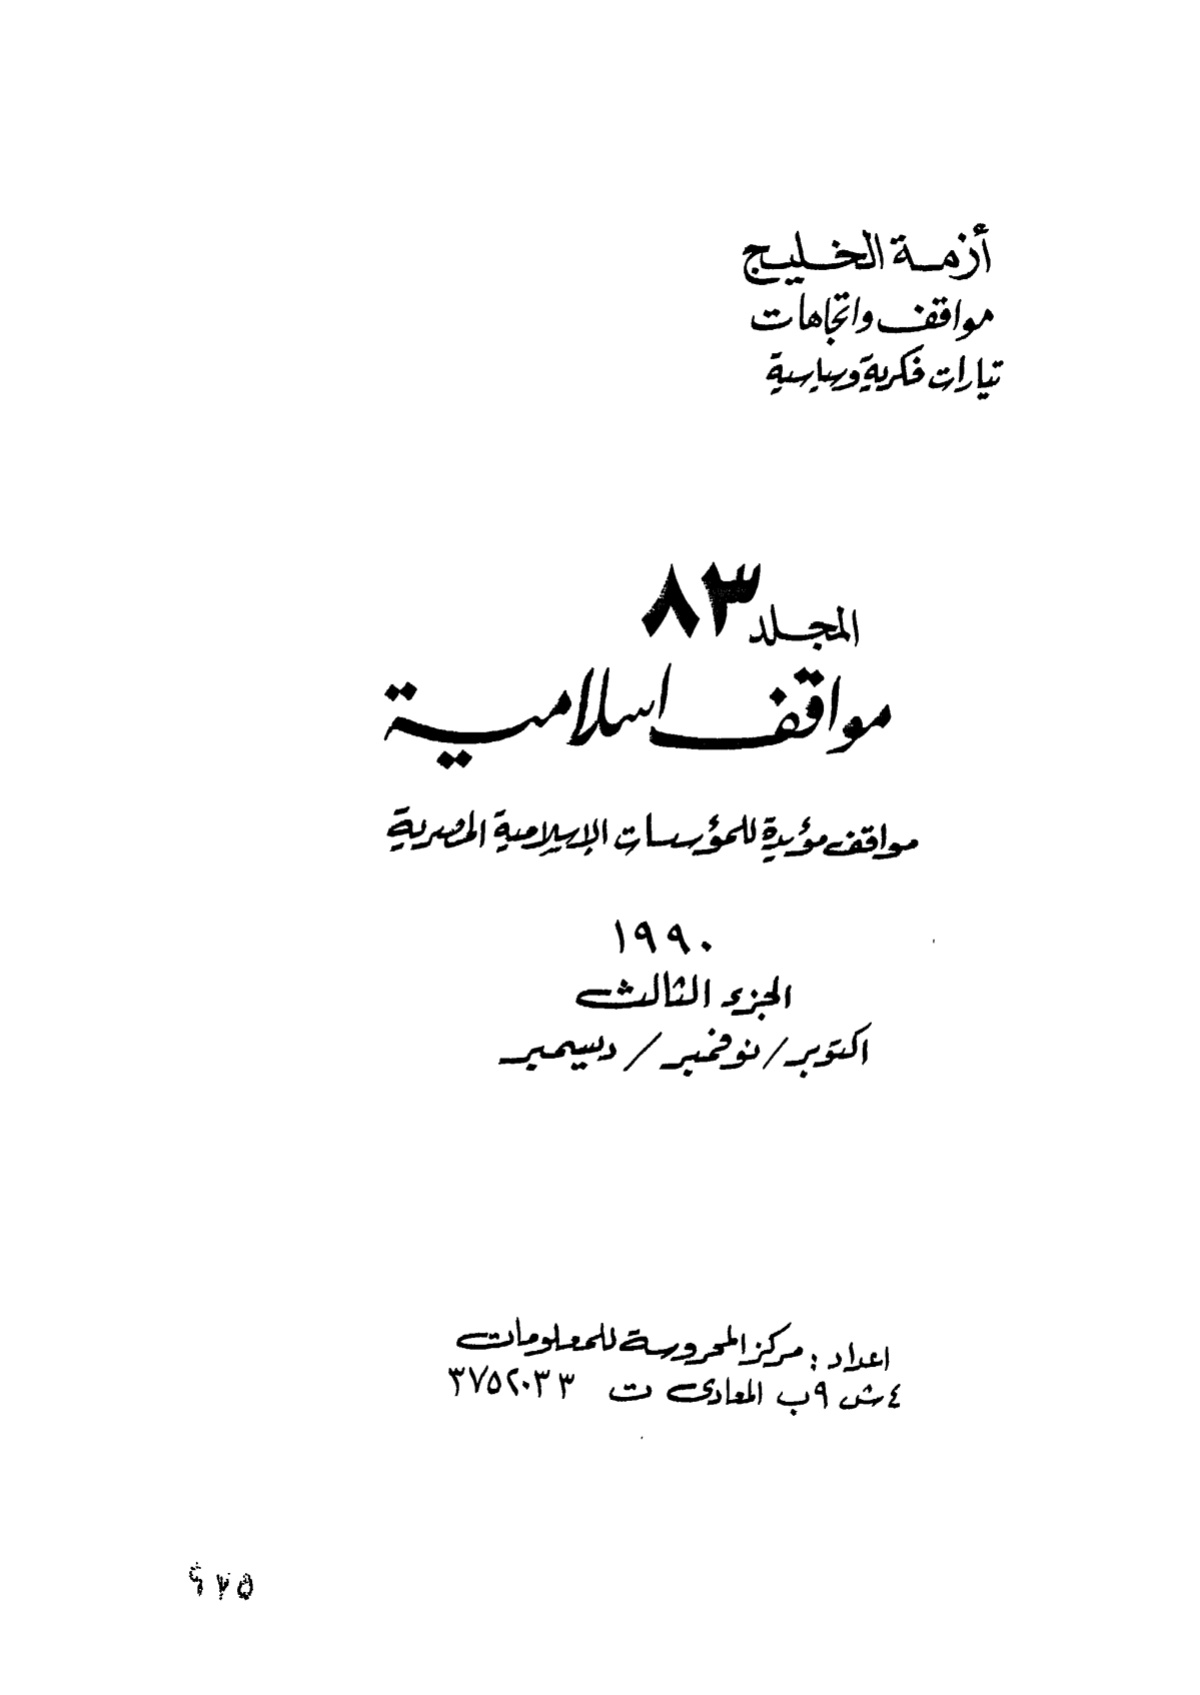 أزمة الخليج
مواقف واتجاهات
تيارات فكرية وسياسية
المجلد ٨٣
مواقف اسلامية
مواقف مؤيدة للمؤسسات الإسلامية المصرية
١٩٩٠
الجزء الثالث
اكتوبر / نوفمبر / ديسمبر
اعداد : مركز المحروسة للمعلومات
٤ ش ٩ب المعادى ت ٣٧٥٢٠٣٣